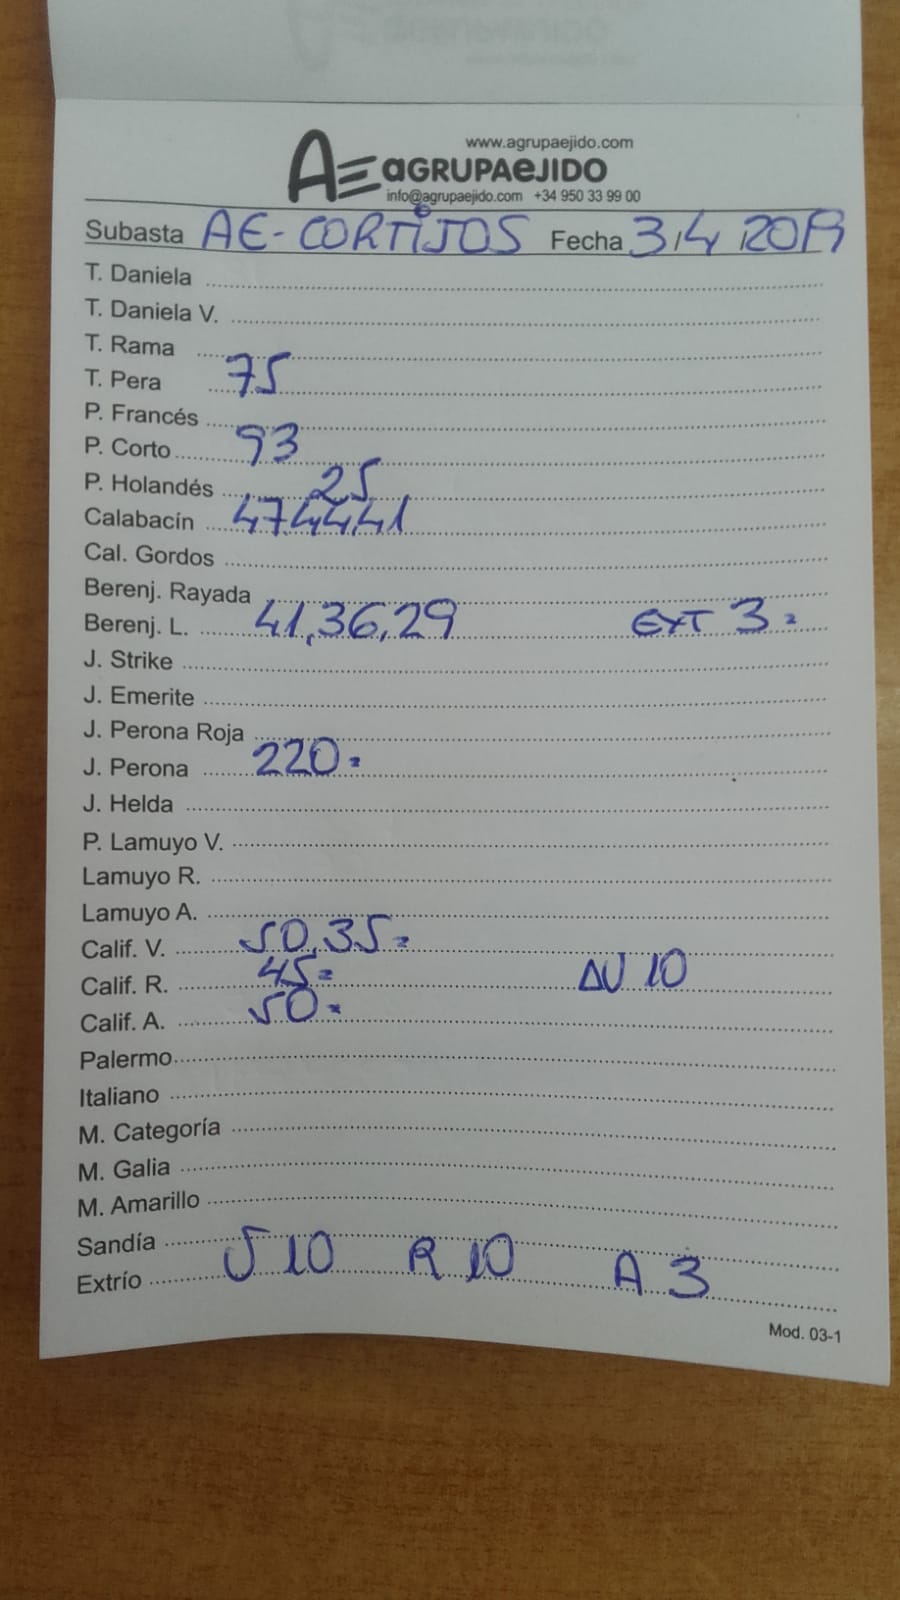 www.agrupaejido.com
AE aGRUPAeJIDO
info@agrupaejido.com +34 950 33 99 00
Subasta AE-CORTIJOS Fecha 3/4/2019
T. Daniela
T. Daniela V.
T. Rama
T. Pera 75
P. Francés
P. Corto 93
P. Holandés 25
Calabacín 47,44,41
Cal. Gordos
Berenj. Rayada
Berenj. L. 41,36,29 EXT 3=
J. Strike
J. Emerite
J. Perona Roja
J. Perona 220=
J. Helda
P. Lamuyo V.
Lamuyo R.
Lamuyo A.
Calif. V. 50,35=
Calif. R. 45= AV 10
Calif. A. 50=
Palermo
Italiano
M. Categoría
M. Galia
M. Amarillo
Sandía
Extrío V 10 R 10 A 3
Mod. 03-1